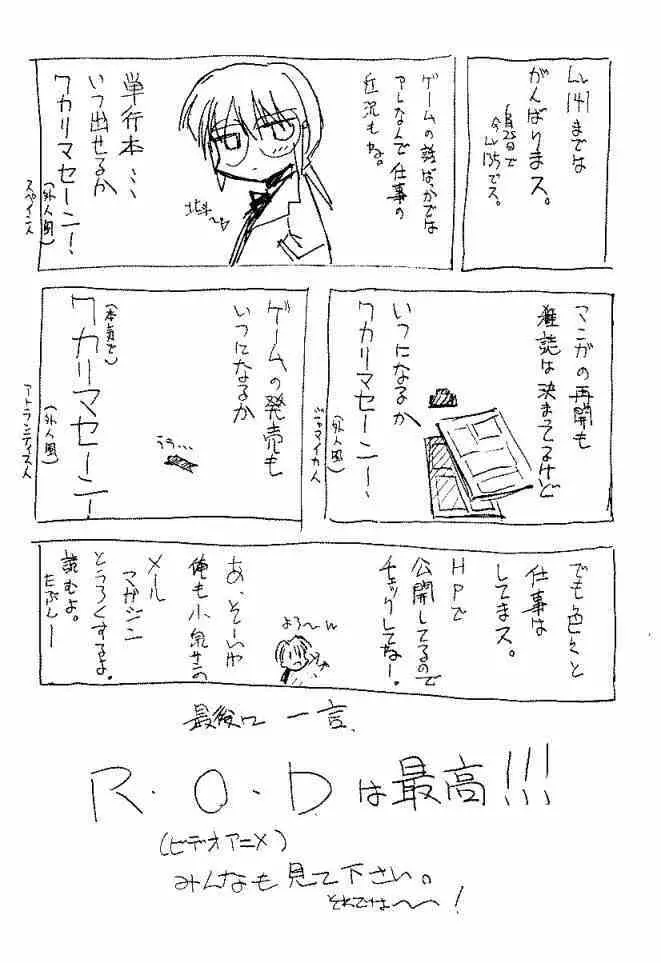 Lv141までは
がんばりまス。
6月25日で
今Lv135でス。
ゲームの話ばっかでは
アレなんで仕事の
近況もね。
単行本…
いつ出せるか
ワカリマセーン！
（外人風）
スペイン人
マンガの再開も
雑誌は決まってるけど
いつになるか
ワカリマセーン！
（外人風）
ジャマイカ人
ゲームの発売も
いつになるか
（本気で）
ワカリマセーン！
（外人風）
アトランティス人
でも色々と
仕事は
してまス。
HPで
公開してるので
チェックしてねー！
よろ〜
あ、そーいや
俺も小泉サンの
メル
マガジン
とうろくするよ。
読むよ。
たぶんー
最後に一言、
R.O.Dは最高!!!
（ビデオアニメ）
みんなも見て下さい。
それでは〜〜！